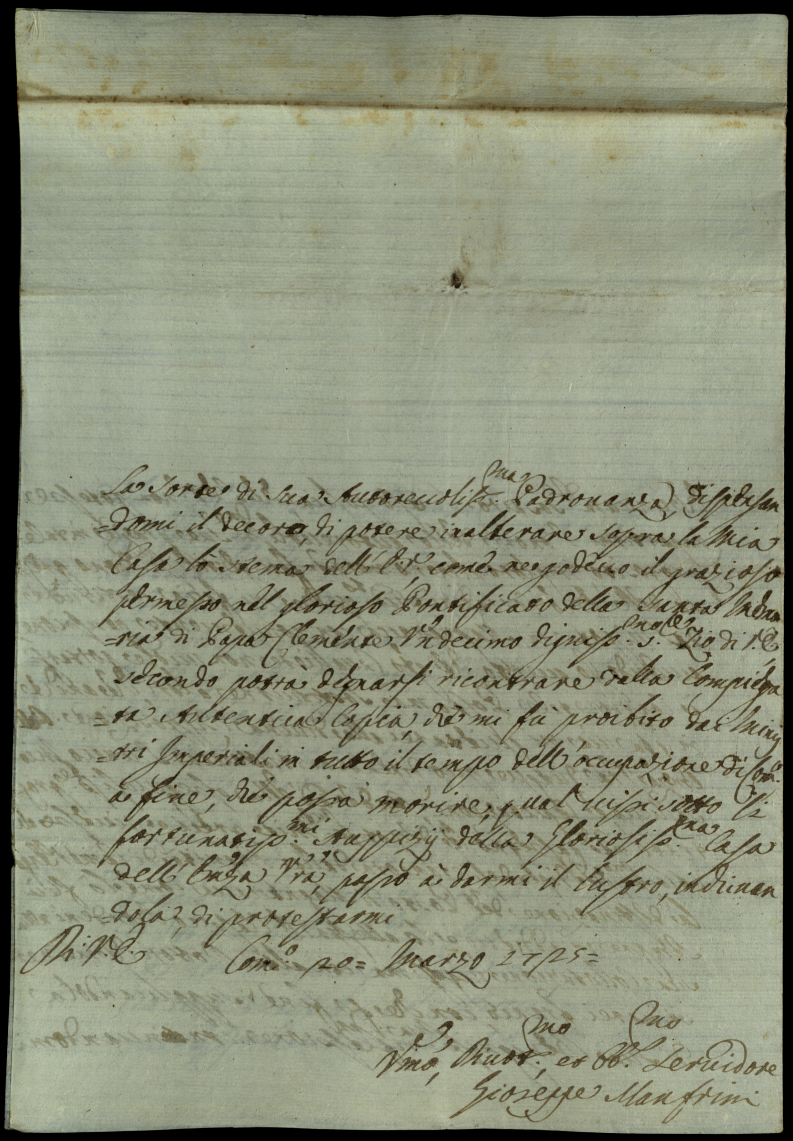 La Sorte di Sua Autoreuoliss.ma Padronanza, dispensan
=domi il decoro, di potere inalterare sopra la Mia
Casa lo stema dell' come ne godeuo il grazioso
permesso nel glorioso Pontificato della Santa Memo
=ria di Papa Clemente Undecimo digniss.mo S. Zio di V.E.
secondo potrà degnarsi ricontrare dalla Compiega
=ta Autentica Copia, che mi fù proibito da Minis
=tri Imperiali in tutto il tempo dell'ocupazione di Com:
a fine, che possa morire, qual uissi sotto li
fortunatiss.mi Auspizij della Gloriosiss.ma Casa
dell' Enza Vra, passo à darmi il lustro, inchinan
=dola, di protestarmi
Di V.E. Com.o 20= Marzo 1725=
Vmo, Diuot.mo, et Obb.mo Seruidore
Gioseppe Manfrini